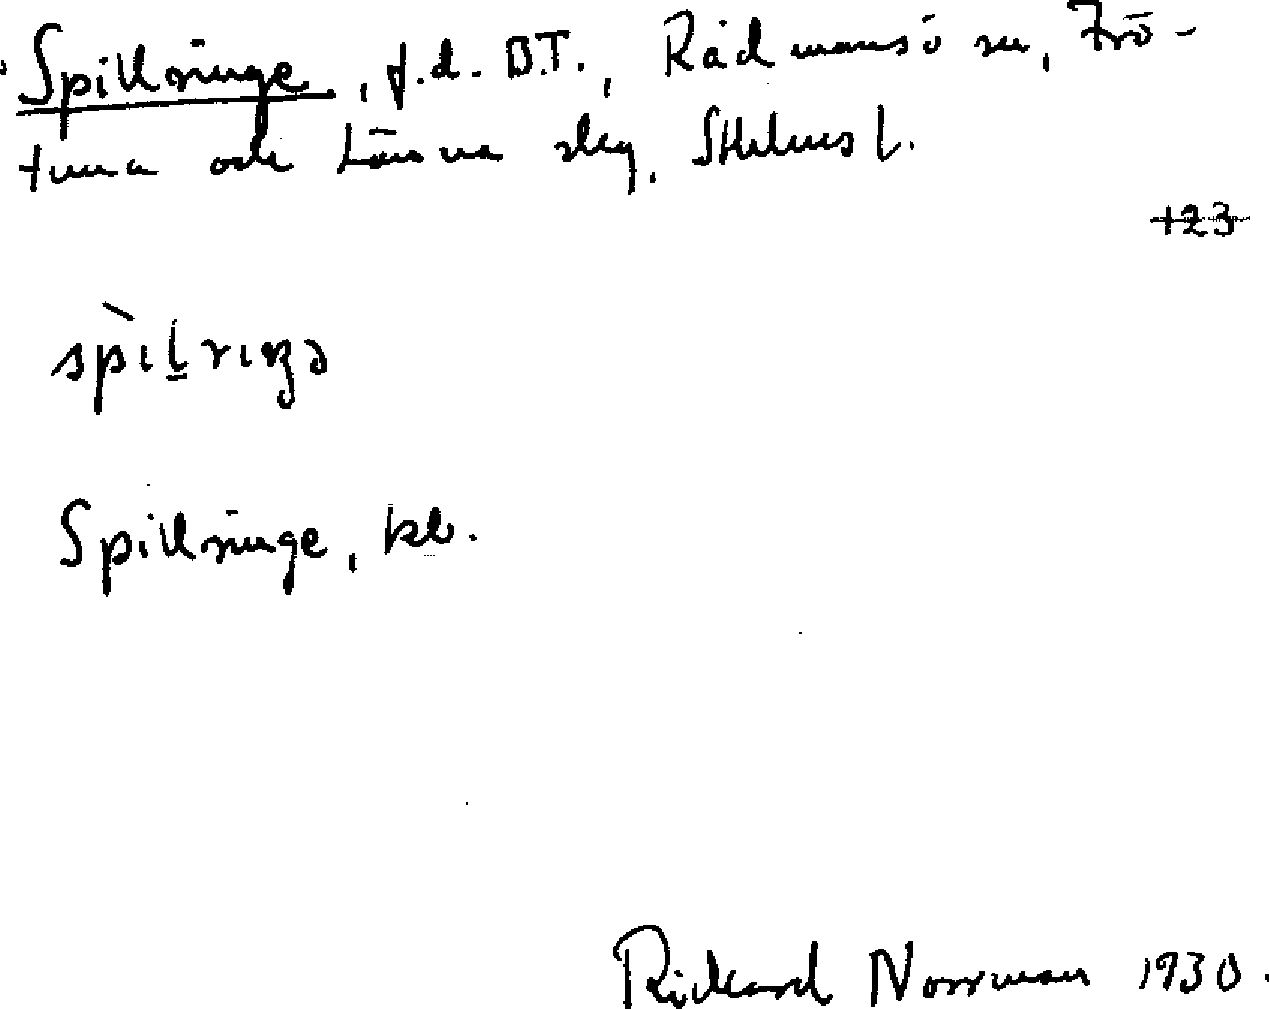 Spillringe, f.d. B.T., Rådmansö sn, Frö-
tuna och Länna skg, Sthlms l.
+23
spìl̠riŋə
Spillringe, kb.
Rickard Norrman 1930.